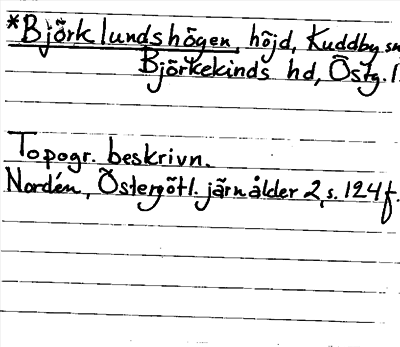 *Björklundshögen, höjd, Kuddby sn
Björkekinds hd, Östg. l.
Topogr. beskrivn.
Nordén, Östergötl. järnålder 2, s. 124 f.